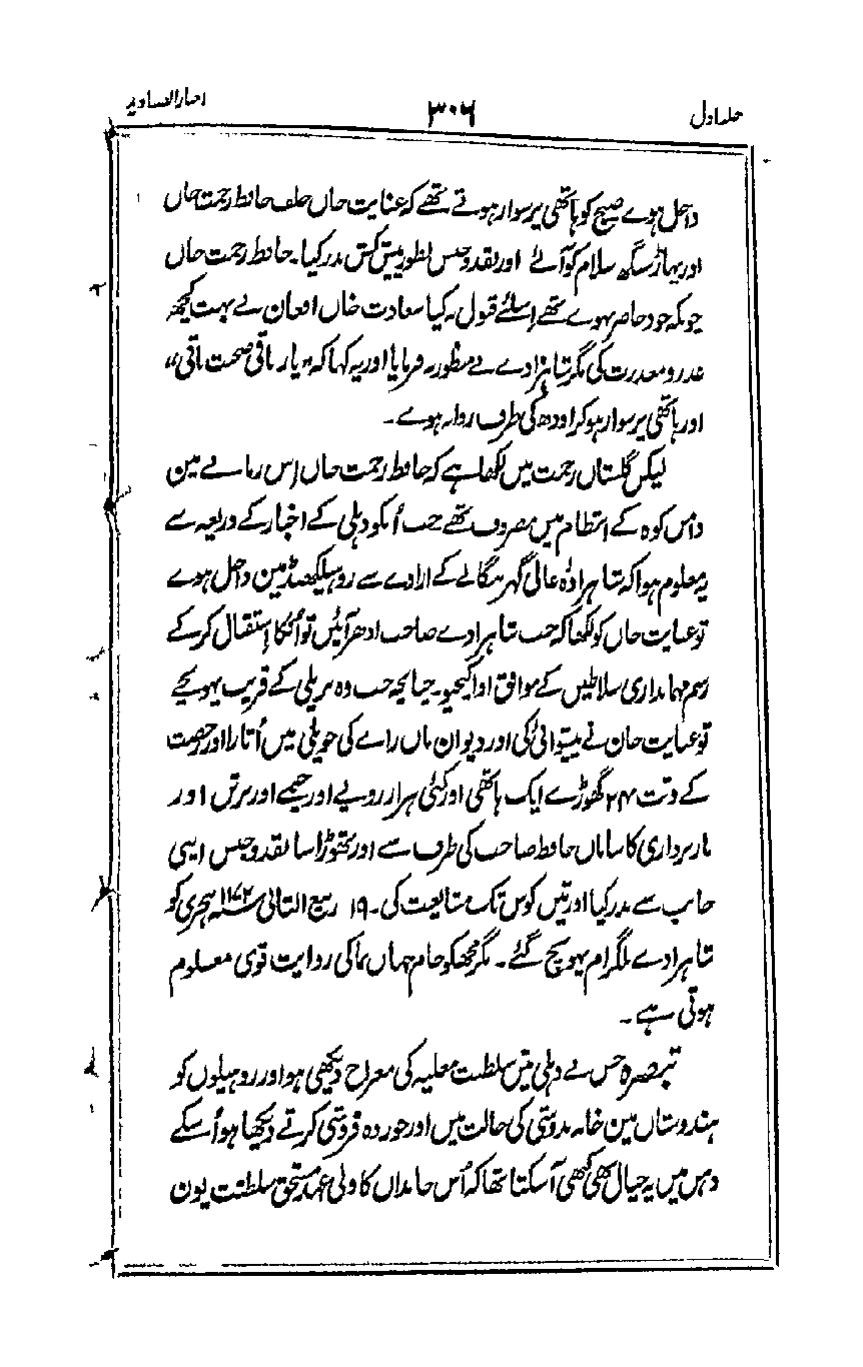 جلد اول ۳۰۶ اخبار الصنادید
داخل ہوے صبح کو ہاتھی پر سوار ہوتے تھے کہ عنایت خاں خلف حافظ رحمت خاں
اور پہاڑ سنگھ سلام کو آئے اور نقد و جنس بطور پیش کش نذر کیا۔ حافظ رحمت خاں
چونکہ خود حاضر نہوے تھے اسلئے قبول نہ کیا سعادت خاں افغان نے بہت کچھ
عذر و معذرت کی مگر شاہزادے نے منظور نہ فرمایا اور یہ کہا کہ "یار باقی صحبت باقی"
اور ہاتھی پر سوار ہو کر اودھ کی طرف روانہ ہوے۔
لیکن گلستاں رحمت میں لکھا ہے کہ حافظ رحمت خاں اس زمانے مین
دامن کوہ کے انتظام میں مصروف تھے جب اُنکو دہلی کے اخبار کے ذریعہ سے
یہ معلوم ہوا کہ شاہزادۂ عالی گہر بنگالے کے ارادے سے روہیلکھنڈ مین داخل ہوے
تو عنایت خاں کو لکھا کہ جب شاہزادے صاحب ادھر آئیں تو اُنکا استقبال کر کے
رسم مہمانداری سلاطین کے موافق ادا کیجیو۔ چنانچہ جب وہ بریلی کے قریب پہونچے
تو عنایت خان نے پیشوائی کی اور دیوان مان راے کی حویلی میں اُتارا اور رخصت
کے وقت ۲۴ گھوڑے ایک ہاتھی اور کئی ہزار روپے اور خیمے اور برتن اور
باربرداری کا ساماں حافظ صاحب کی طرف سے اور تھوڑا سا نقد و جنس اپنی
جانب سے نذر کیا اور تین کوس تک متابعت کی۔ ۱۹ ربیع الثانی ۱۱۷۲ سنہ ہجری کو
شاہزادے بلگرام پہونچ گئے۔ مگر مجھکو جام جہاں نما کی روایت قوی معلوم
ہوتی ہے۔
تبصرہ جس نے دہلی میں سلطنت مغلیہ کی معراج دیکھی ہو اور روہیلوں کو
ہندوستاں مین خانہ بدوشی کی حالت میں اور خوردہ فروشی کرتے دیکھا ہو اُسکے
ذہن میں یہ خیال بھی کبھی آ سکتا تھا کہ اُس خاندان کا ولی عہد مستحق سلطنت یون